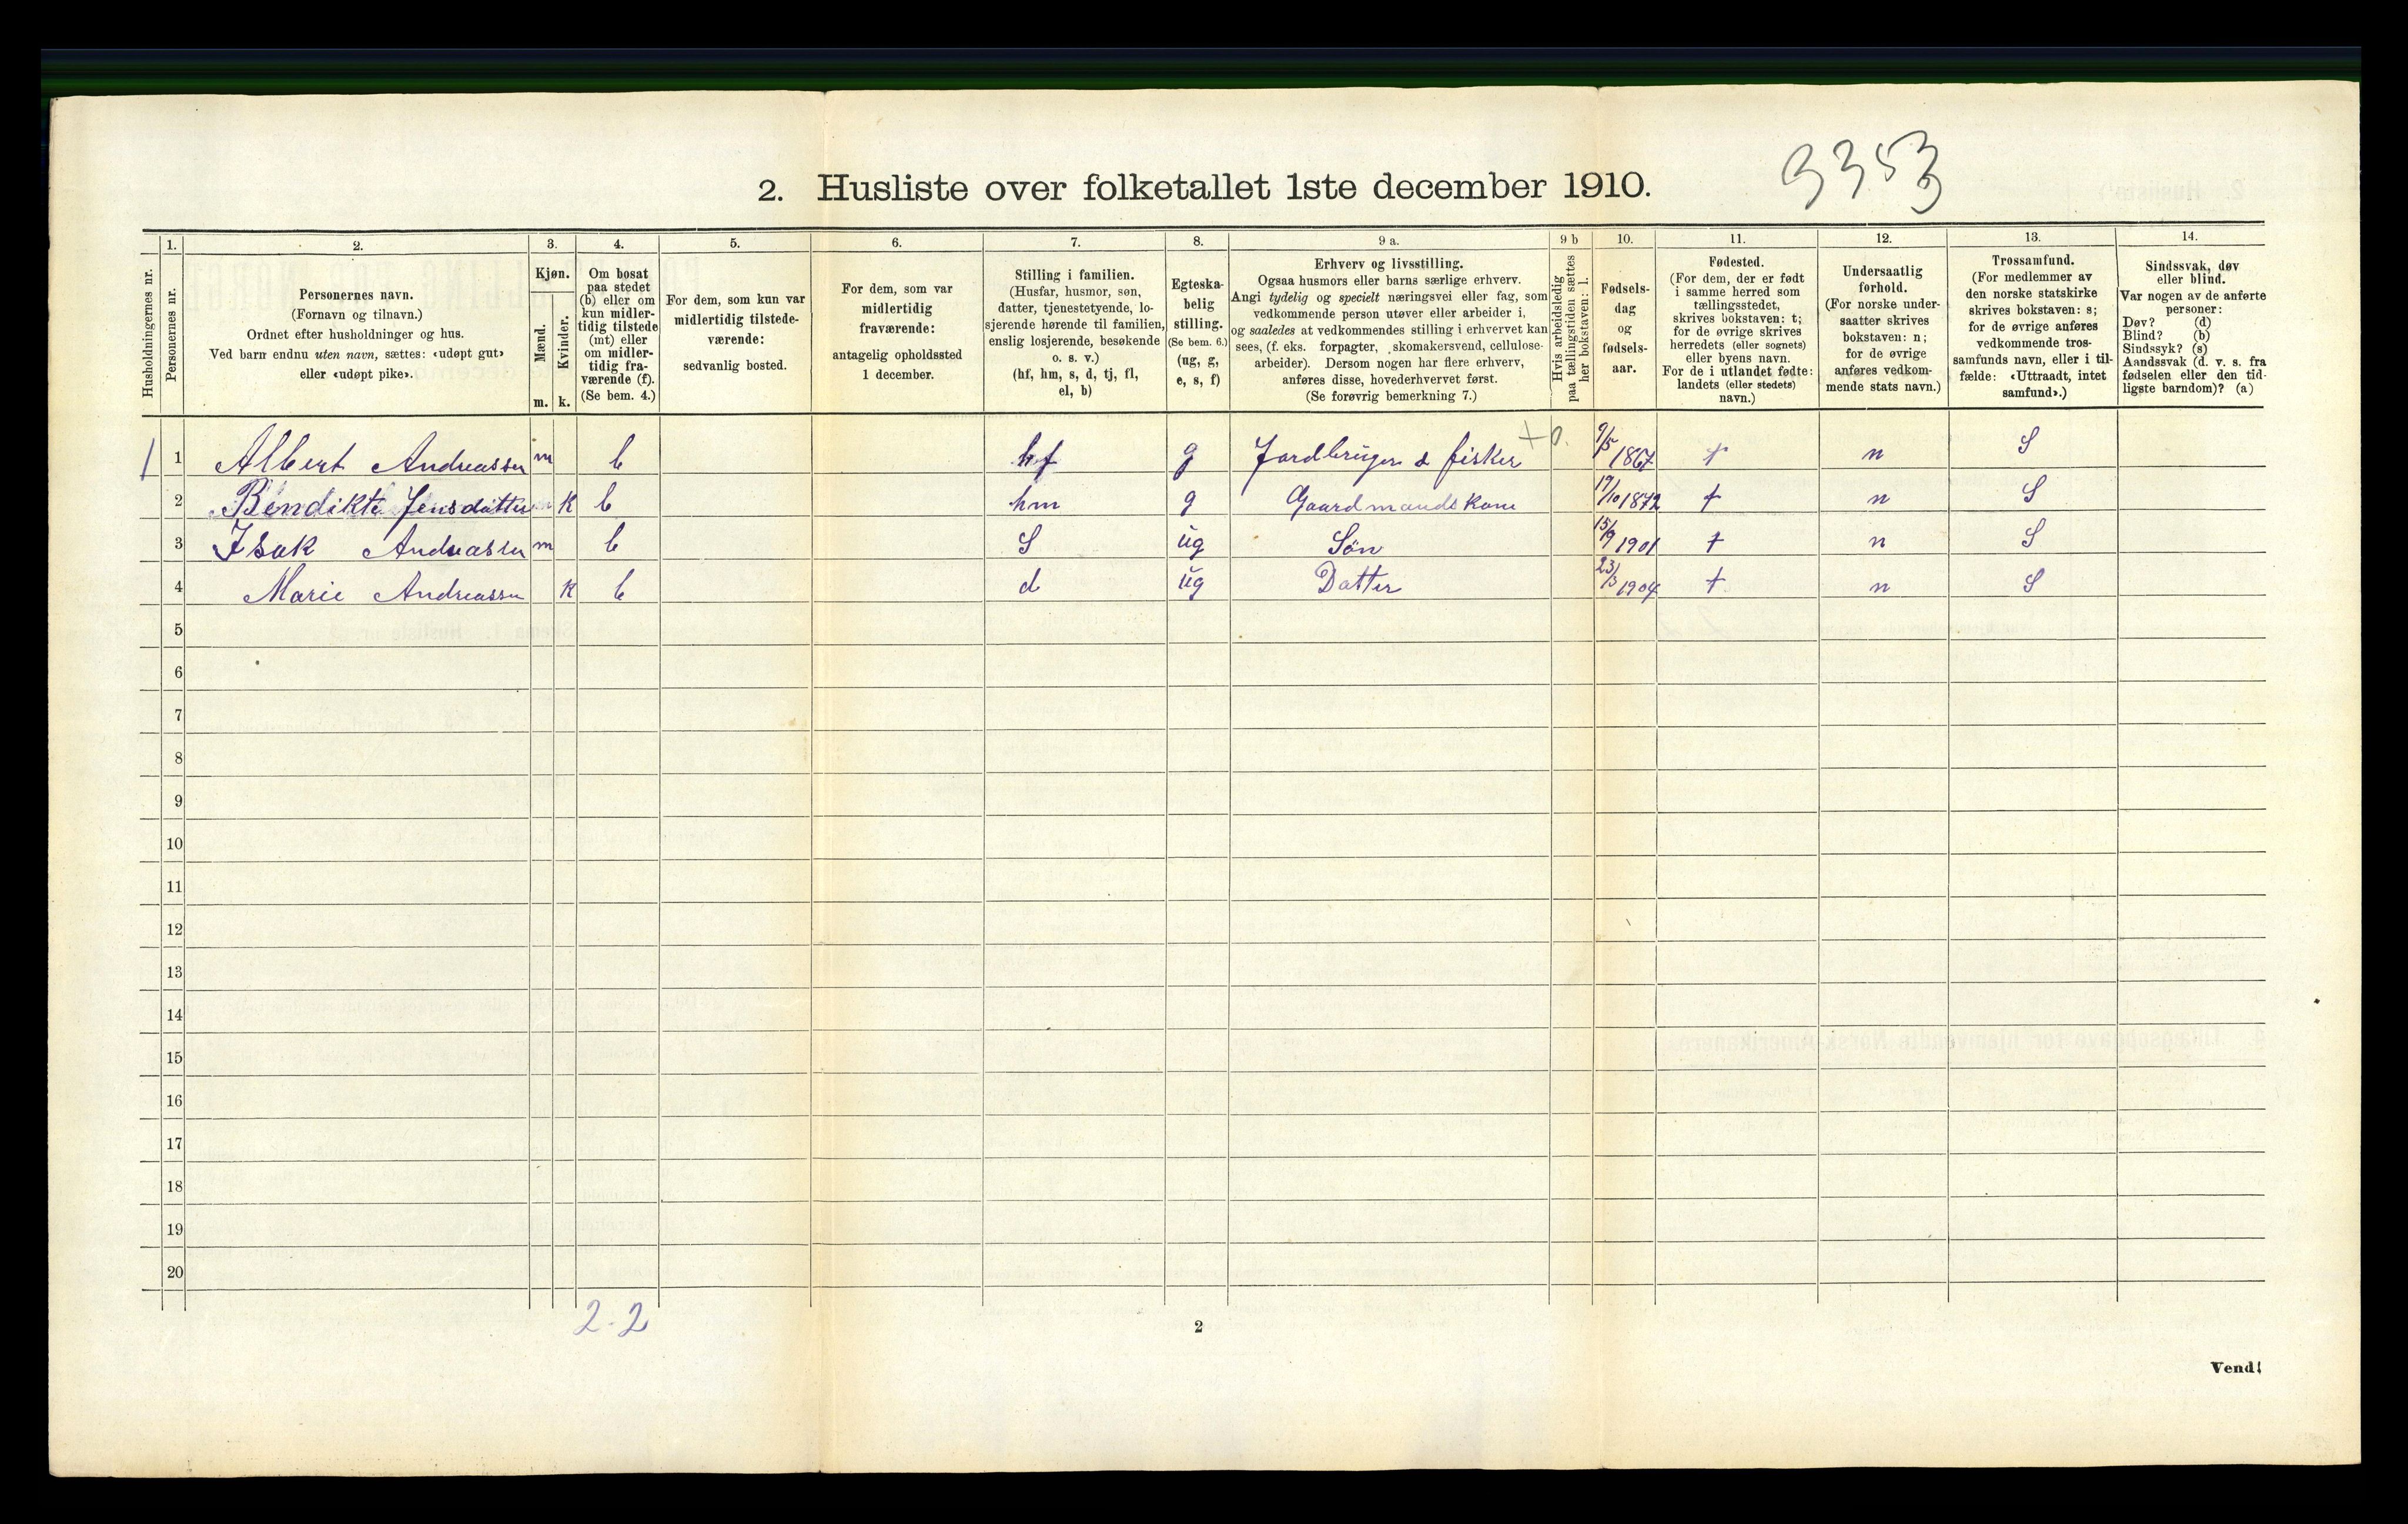 2. Husliste over folketallet 1ste december 1910.
3353
Husholdningernes nr.
1.
Personernes nr.
2.
Personernes navn.
(Fornavn og tilnavn.)
Ordnet efter husholdninger og hus.
Ved barn endnu uten navn, sættes: «udøpt gut»
eller «udøpt pike».
3.
Kjøn.
Mænd.
Kvinder.
m. k.
4.
Om bosat
paa stedet
(b) eller om
kun midler-
tidig tilstede
(mt) eller
om midler-
tidig fra-
værende (f).
(Se bem. 4.)
5.
For dem, som kun var
midlertidig tilstede-
værende:
sedvanlig bosted.
6.
For dem, som var
midlertidig
fraværende:
antagelig opholdssted
1 december.
7.
Stilling i familien.
(Husfar, husmor, søn,
datter, tjenestetyende, lo-
sjerende hørende til familien,
enslig losjerende, besøkende
o. s. v.)
(hf, hm, s, d, tj, fl,
el, b)
8.
Egteska-
belig
stilling.
(Se bem. 6.)
(ug, g,
e, s, f)
9 a.
Erhverv og livsstilling.
Ogsaa husmors eller barns særlige erhverv.
Angi tydelig og specielt næringsvei eller fag, som
vedkommende person utøver eller arbeider i,
og saaledes at vedkommendes stilling i erhvervet kan
sees, (f. eks. forpagter, skomakersvend, cellulose-
arbeider). Dersom nogen har flere erhverv,
anføres disse, hovederhvervet først.
(Se forøvrig bemerkning 7.)
9 b
Hvis arbeidsledig
paa tællingstiden sættes
her bokstaven: l.
10.
Fødsels-
dag
og
fødsels-
aar.
11.
Fødested.
(For dem, der er født
i samme herred som
tællingsstedet,
skrives bokstaven: t;
for de øvrige skrives
herredets (eller sognets)
eller byens navn.
For de i utlandet fødte:
landets (eller stedets)
navn.)
12.
Undersaatlig
forhold.
(For norske under-
saatter skrives
bokstaven: n;
for de øvrige
anføres vedkom-
mende stats navn.)
13.
Trossamfund.
(For medlemmer av
den norske statskirke
skrives bokstaven: s;
for de øvrige anføres
vedkommende tros-
samfunds navn, eller i til-
fælde: «Uttraadt, intet
samfund».)
14.
Sindssvak, døv
eller blind.
Var nogen av de anførte
personer:
Døv? (d)
Blind? (b)
Sindssyk? (s)
Aandssvak (d. v. s. fra
fødselen eller den tid-
ligste barndom)? (a)
1 1 Albert Andreassen m b hf g Jordbruger & fisker 9/5 1867 t n S
2 Bendikte Jensdatter k b hm g Gaardmandskone 17/10 1872 t n S
3 Isak Andreassen m b S ug Søn 15/9 1901 t n S
4 Marie Andreassen k b d ug Datter 23/3 1904 t n S
5
6
7
8
9
10
11
12
13
14
15
16
17
18
19
20
2-2
2
Vend!